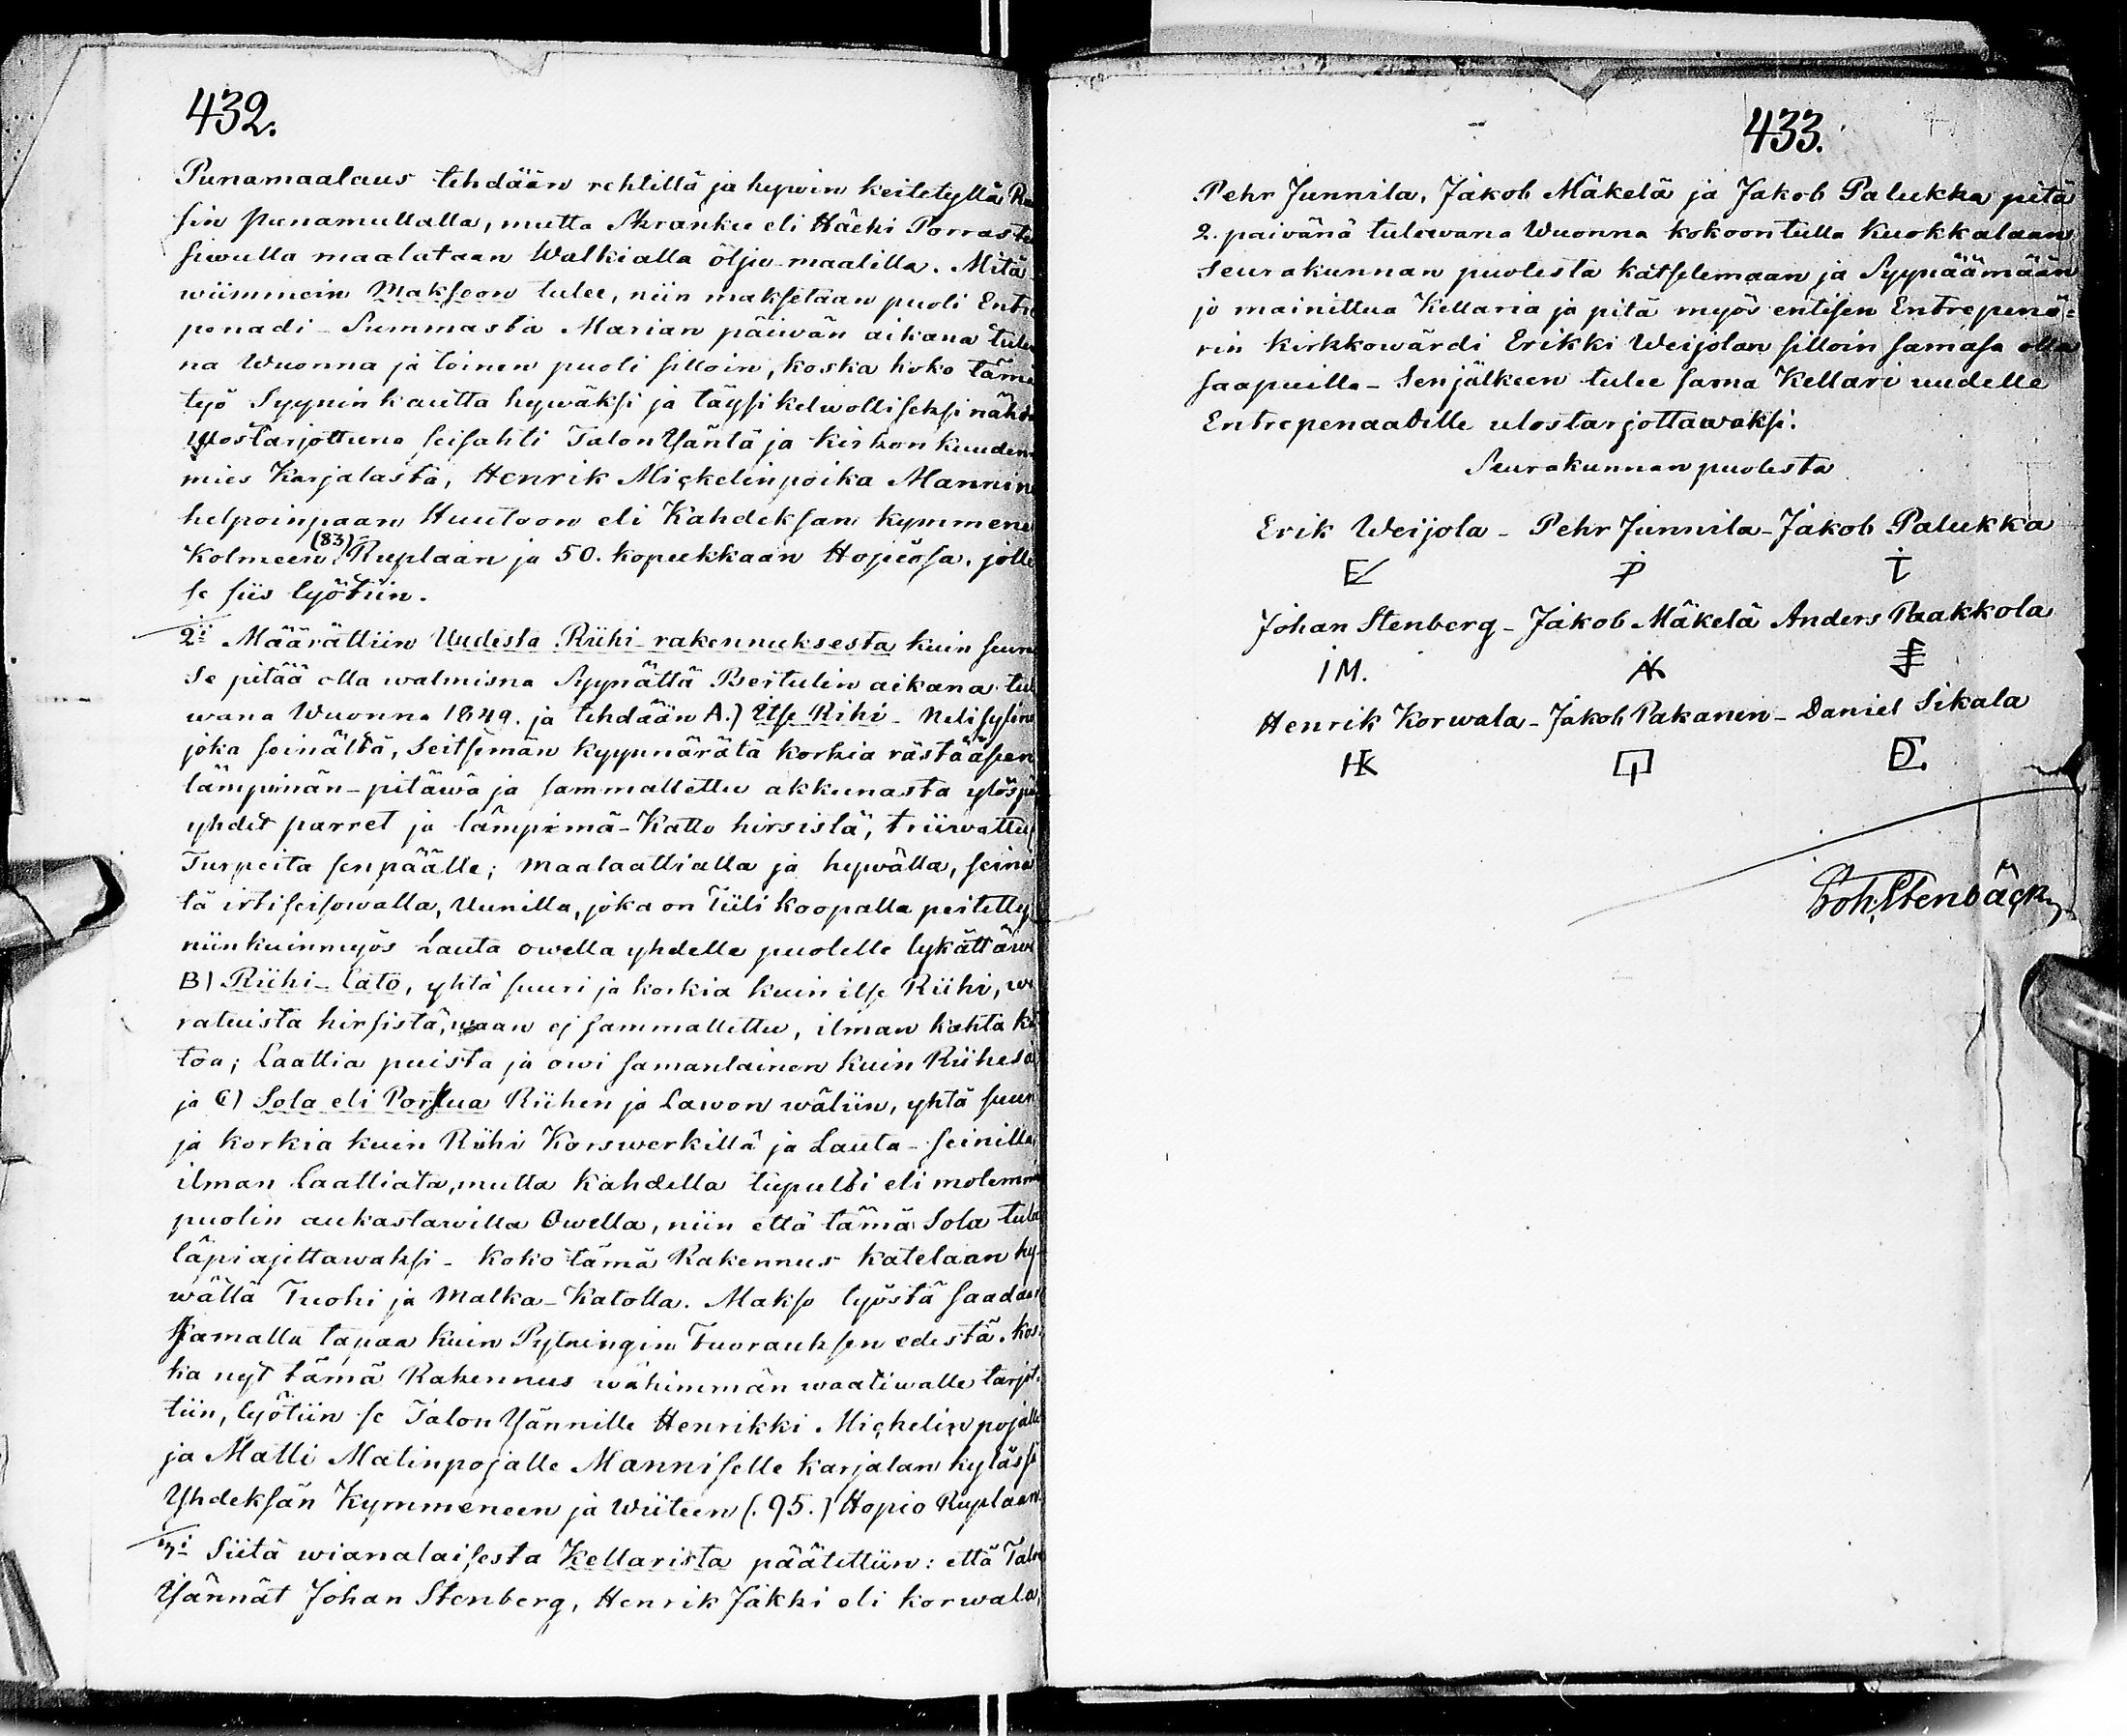 432.
Punamaalaus tehdään rehtillä ja hywin keitetyllä
sin Punamullalla, mutta Skranku eli Häcki Porrasten
siwulla maalataan Walkialla öljy-maalilla. Mitä
wiimmein Makseon tulee, niin maksetaan puoli Entre
penadi-Summasta Marian päiwän aikana tulewa
na Wuonna ja toinen puoli silloin, koska koko tämä
työ Syynin kautta hywäksi ja täysi kelwolliseksi nähdä
Ulostarjottuna seisahti Talon Isäntä ja kirkon kuuden
mies Karjalasta, Henrik Mickelinpoika Mannin
helpoinpaan Huutoon eli Kahdeksan kymmene
Kolmeen (83) Ruplaan ja 50. kopeekkaan Hopiosa, jolle
se siis lyötiin.
2:i Määrättiin Uudesta Riihi-rakennuksesta kuin seura
Se pitää olla walmisna Syynättä Bertulin aikana tule
wana Wuonna 1849. ja tehdään A.) Itse Rihi- Nelisylinen
joka seinältä, Seitsemän kyynnärätä korkia rästääseen
lämpimän-pitäwä ja sammallettu akkunasta ylöspä
yhdet parret ja lämpimä-Katto hirsistä, triiwattu
Turpeita senpäälle; Maalaattialla ja hywällä, seinä
tä irtiseisowalla, Uunilla, joka on Tiili koopalla peitetty
niinkuinmyös Lauta owella yhdelle puolelle lykättäwä
B) Riihi-Lato, yhtä suuri ja korkia kuin itse Riihi, we
ratuista hirsistä, waan ej sammallettu, ilman kahta ka
toa; Laattia puista ja owi samanlainen kuin Riihesä
ja C) Sola eli Porstua Riihen ja Lawon wäliin, yhtä suuri
ja korkia kuin Riihi Korswerkillä ja Lauta-seinillä
ilman Laattiata, mutta kahdella tupulti eli molemmi
puolin aukastawilla Owella, niin että tämä Sola tula
läpiajettawaksi- Koko tämä Rakennus katetaan hy-
wällä Tuohi ja Malka-Katolla. Makso työstä saadaan
samalla tapaa kuin Pytningin Wuorauksen edestä. Kos-
ka nyt tämä Rakennus wähimmän waatiwalle tarjot-
tiin, lyötiin se Talon Isännille Henrikki Michelinpojalle
ja Matti Matinpojalle Manniselle karjalan kylässä
Yhdeksän Kymmeneen ja Wiiteen (.95.) Hopio Ruplaan.
3:i Siitä wianalaisesta Kellarista päätettiin: että Talon
Isännät Johan Stenberg, Henrik Jäkki eli korwala,
433.
Pehr Junnila, Jakob Mäkelä ja Jakob Palukka pitä
2. päivänä tulewana Wuonna kokoontulla Kuokkalaan
Seurakunnan puolesta katselemaan ja Syynäämään
jo mainittua Kellaria ja pitä myös entisen Entrepenä-
rin kirkkowärdi Erikki Weijolan silloin samasa olla
saapuilla- Senjälkeen tulee sama Kellari uudelle
Entrepenaadille ulostarjottawaksi.
Seurakunnan puolesta
Erik Weijola- Pehr Junnila- Jakob Palukka
Johan Stenberg- Jakob Mäkelä Anders Paakkola
IM.
Henrik Korwala- Jakob Pakanen- Daniel Sikala
HK
Joh. Stenbäck